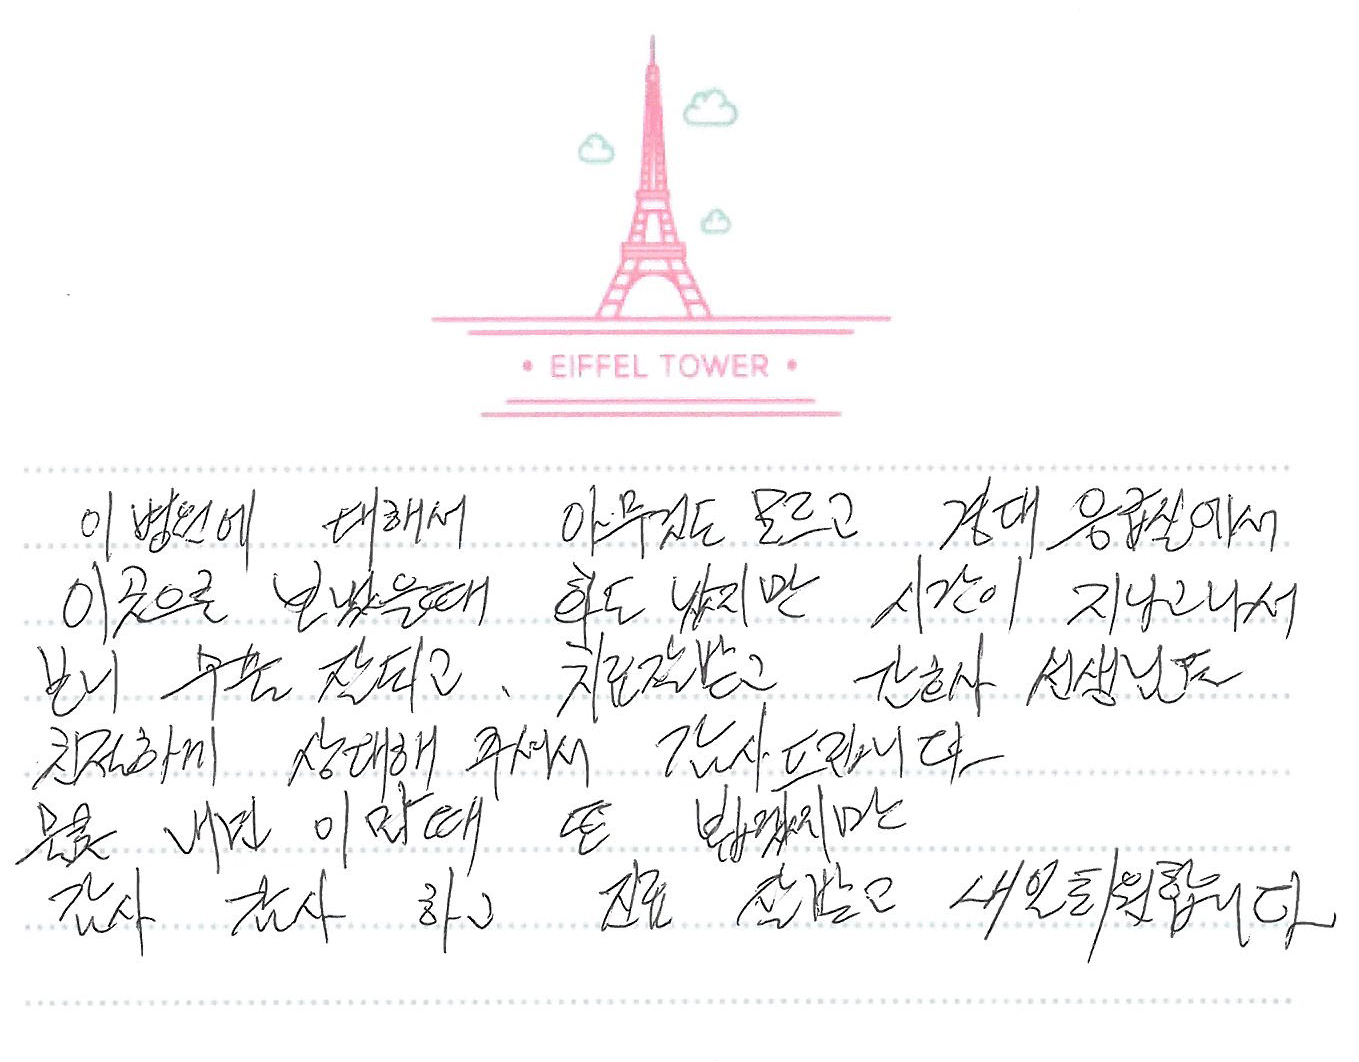 • EIFFEL TOWER •
이 병원에 대해서 아무것도 모르고 경대 응급실에서
이곳으로 보냈을때 화도 났지만 시간이 지나고나서
보니 수술 잘되고, 치료잘받고 간호사 선생님도
친절하게 상대해 주셔서 감사드립니다
물론 내년 이맘때 또 뵙겠지만
감사 감사 하고 진료 잘받고 내일퇴원합니다